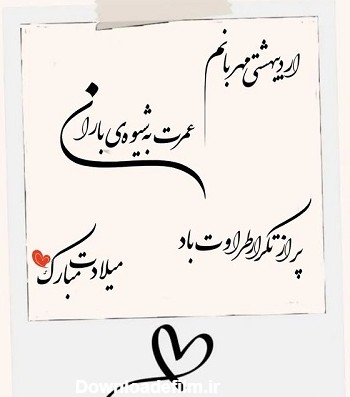 اردیبهشتی مهربانم
عمرت به شیوه‌ی باران
پر از تکرار طراوت باد
میلادت مبارک
Downloadefilm.ir